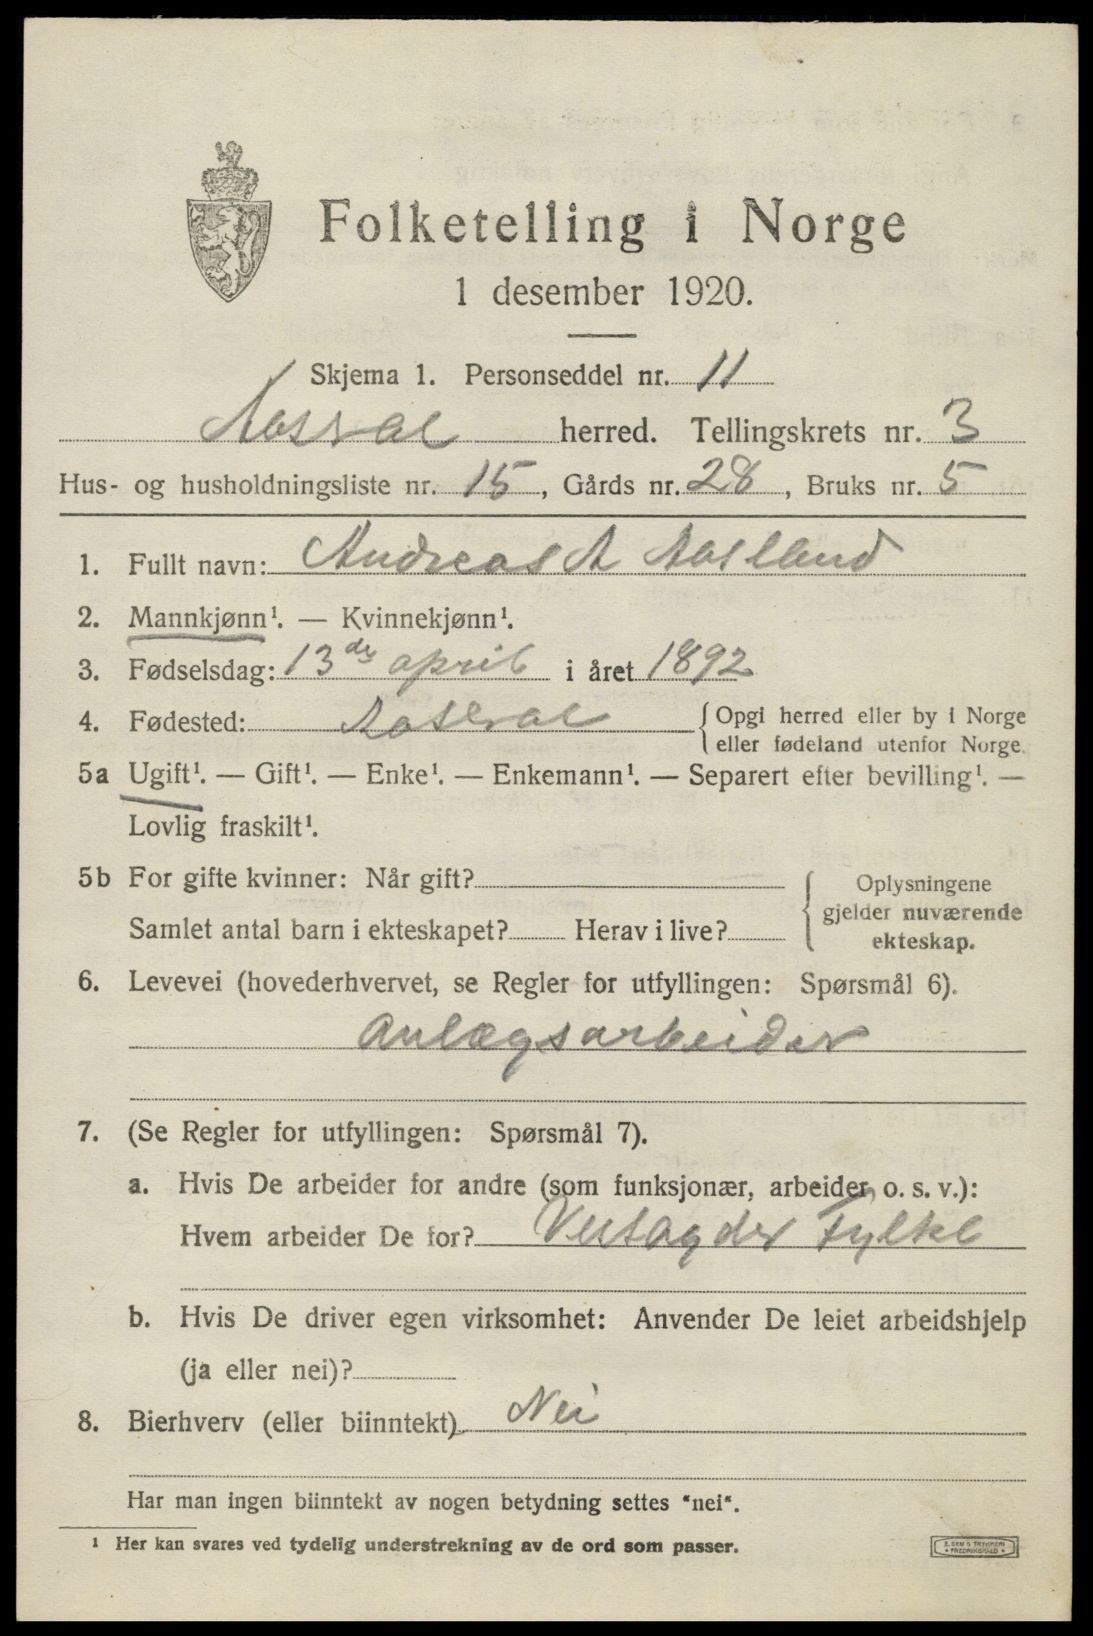 Folketelling i Norge
1 desember 1920.
Skjema 1. Personseddel nr. 11
Aaseral herred. Tellingskrets nr. 3
Hus- og husholdningsliste nr. 15, Gårds nr. 28, Bruks nr. 5
1. Fullt navn: Andreas A Aasland
2. Mannkjønn¹. — Kvinnekjønn¹.
3. Fødselsdag: 13de april i året 1892
4. Fødested: Aaseral {Opgi herred eller by i Norge
eller fødeland utenfor Norge.
5a Ugift¹. — Gift¹. — Enke¹. — Enkemann¹. — Separert efter bevilling¹. —
Lovlig fraskilt¹.
5b For gifte kvinner: Når gift? { Oplysningene
gjelder nuværende
Samlet antal barn i ekteskapet? Herav i live? ekteskap.
6. Levevei (hovederhvervet, se Regler for utfyllingen: Spørsmål 6).
Anlægsarbeider
7. (Se Regler for utfyllingen: Spørsmål 7).
a. Hvis De arbeider for andre (som funksjonær, arbeider, o. s. v.):
Hvem arbeider De for? Vestagder Fylke
b. Hvis De driver egen virksomhet: Anvender De leiet arbeidshjelp
(ja eller nei)?
8. Bierhverv (eller biinntekt) Nei
Har man ingen biinntekt av nogen betydning settes "nei".
1 Her kan svares ved tydelig understrekning av de ord som passer.